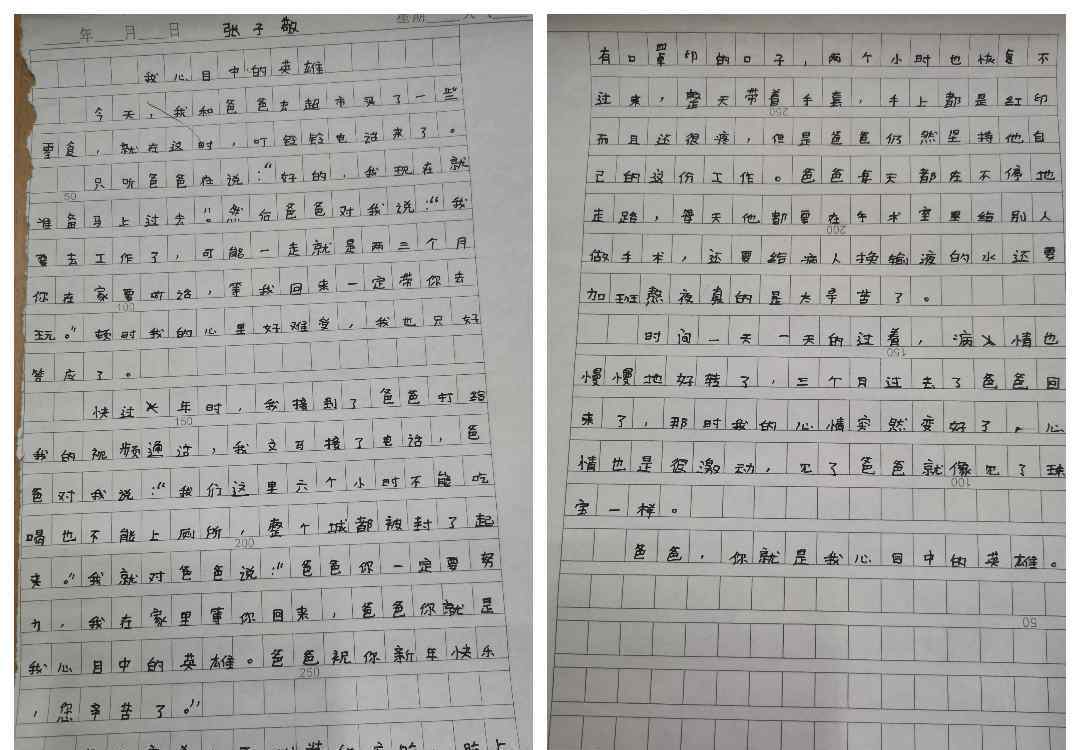 年 月 日 张子敬 星期
我心目中的英雄
今天，我和爸爸去超市买了一些
零食，就在这时，叮铃铃电话来了。
只听爸爸在说：“好的，我现在就
准备马上过去。”然后爸爸对我说：“我
要去工作了，可能一走就是两三个月
你在家要听话，等我回来一定带你去
玩。”顿时我的心里好难受，我也只好
答应了。
快过年时，我接到了爸爸打给
我的视频通话，我立马接了电话，爸
爸对我说：“我们这里六个小时不能吃
喝也不能上厕所，整个城都被封了起
来。”我就对爸爸说：“爸爸你一定要努
力，我在家里等你回来，爸爸你就是
我心目中的英雄。爸爸祝你新年快乐
，您辛苦了。”
50
100
150
200
250
有口罩印的口子，两个小时也恢复不
过来，整天带着手套，手上都是红印
而且还很疼，但是爸爸仍然坚持他自
己的这份工作。爸爸每天都在不停地
走路，每天他都要在手术室里给别人
做手术，还要给病人换输液的水还要
加班熬夜真的是太辛苦了。
时间一天一天的过着，病情也
慢慢地好转了，三个月过去了爸爸回
来了，那时我的心情突然变好了。心
情也是很激动，见了爸爸就像见了珠
宝一样。
爸爸，你就是我心目中的英雄。
250
200
150
100
50